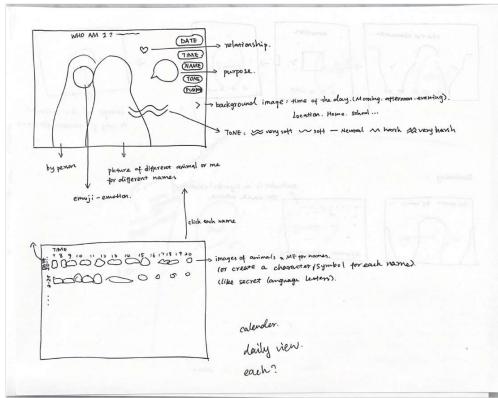 WHO AM I ?
DATE
TIME
NAME
TONE
relationship.
purpose.
background image : time of the day. (Morning. afternoon. evening).
Location. Home. School...
TONE : very soft soft Neutral harsh very harsh
by person
picture of different animal or me
for different names
emoji - emotion.
click each name
TIME
7 8 9 10 11 12 13 14 15 16 17 18 19 20
images of animals & ME for names.
(or create a character/symbol for each name)
(like secret language letters).
calender.
daily view.
each?